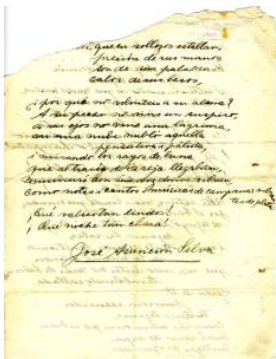 que en sollozos estallan,
presión de sus manos
son de sus palabras
calor de sus besos,
¿por qué no volvieron a su alma?
A su pecho no vino un suspiro,
a sus ojos no vino una lágrima,
ni una nube nubló aquella
pensativa y pálida,
y mirando los rayos de luna
que al través de la reja llegaban,
murmuró con su voz donde vibran
como notas y cantos y músicas de campanas
de plata
¡Qué valses tan lindos!
¡Qué noche tan clara!
José Asunción Silva